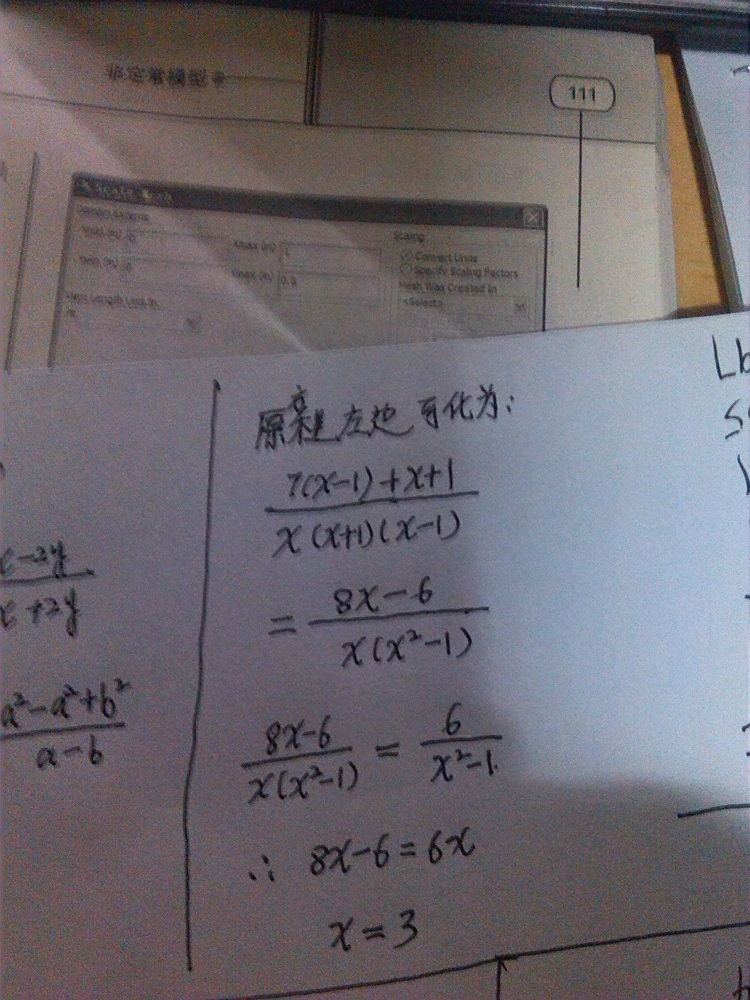 非定常模型
111
Scale Mesh
Domain Extents
Xmin (m) 0
Xmax (m) 1
Ymin (m) 0
Ymax (m) 0.5
Scaling
Convert Units
Specify Scaling Factors
Mesh Was Created In
<Select>
View Length Unit In
m
原方程左边可化为:
7(x-1)+x+1
x(x+1)(x-1)
= 8x-6
x(x²-1)
8x-6 = 6
x(x²-1) x²-1
∴ 8x-6=6x
x=3
x-2y
x+2y
a²-a²+b²
a-b